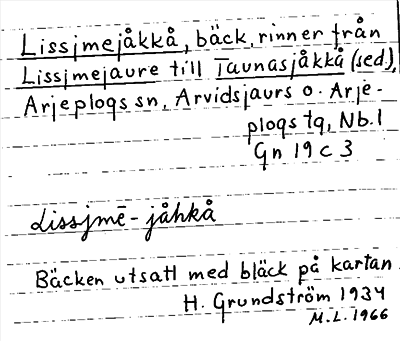 Lissjmejåkkå, bäck, rinner från
Lissjmejaure till Taunasjåkkå (sed.),
Arjeplogs sn, Arvidsjaurs o. Arje-
plogs tg, Nb.l
Gn 19 c 3
Lissjmē-jåhkå
Bäcken utsatt med bläck på kartan
H. Grundström 1934
M.L. 1966